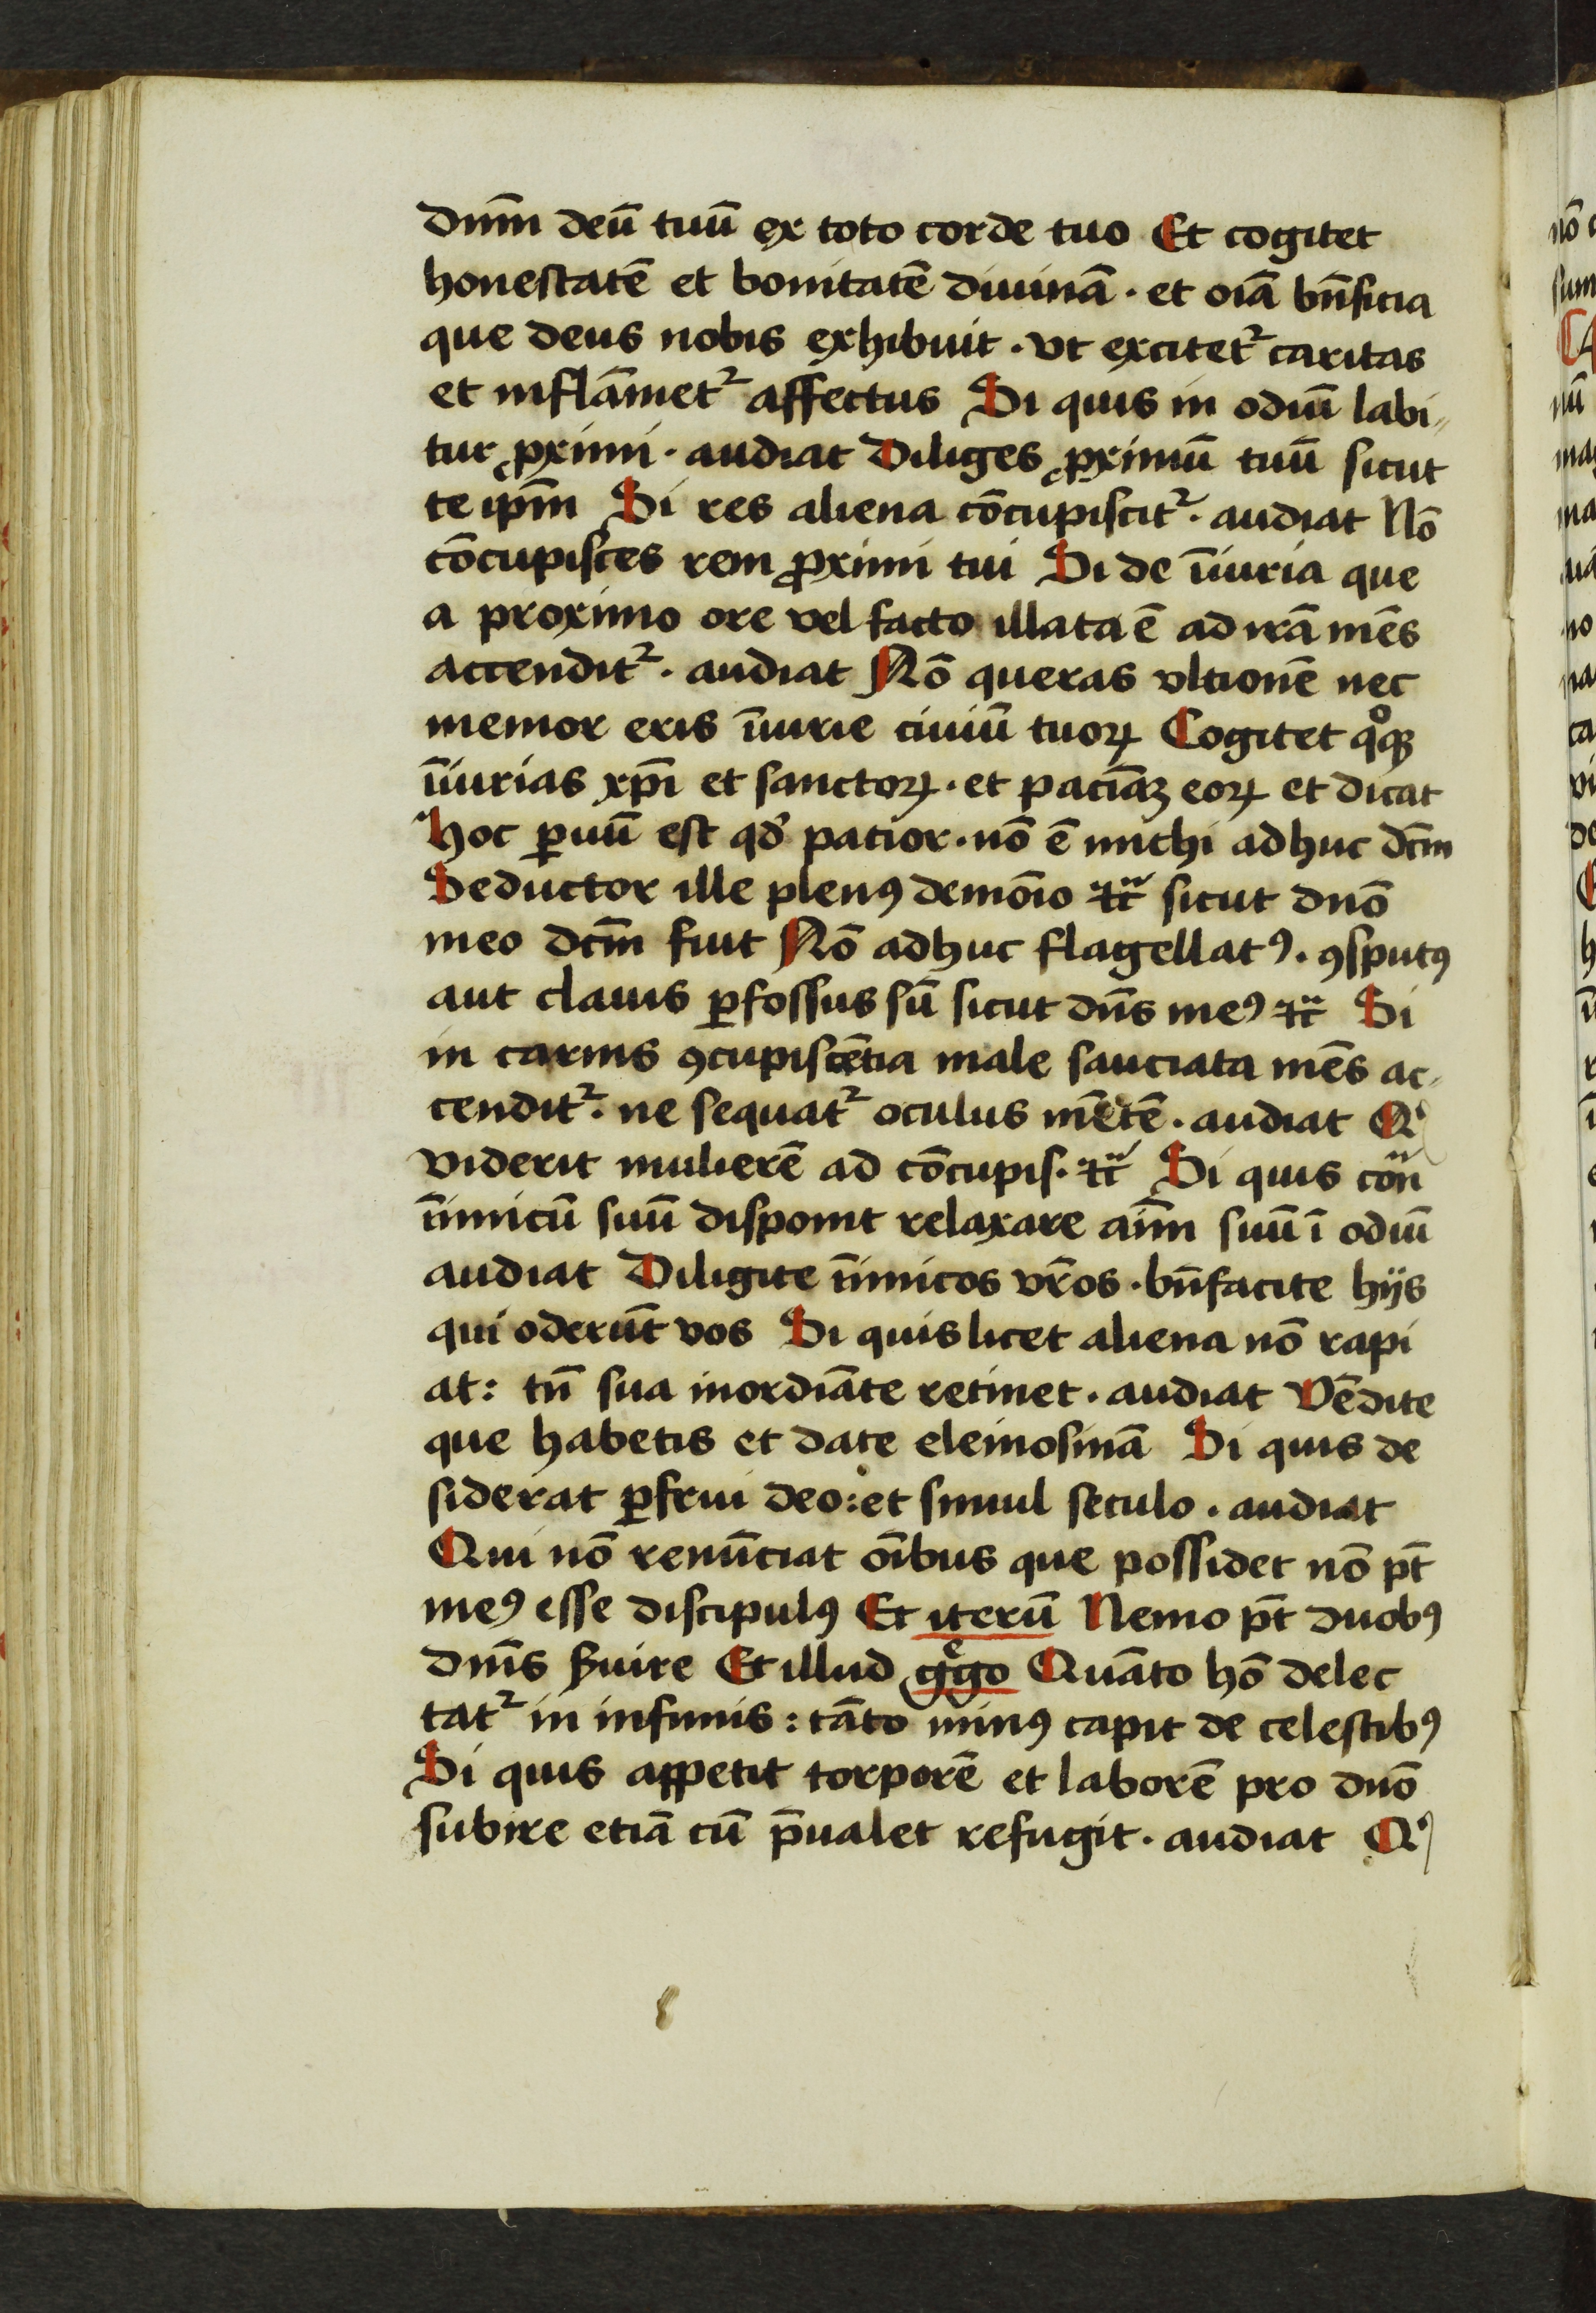 dnm̄ deū tuū ex toto corde tuo Et cogitet
honestatē et bonitatē diuinā · et oīa bn̄ficia
que deus nobis exhibuit · vt excitet᷑ caritas
et inflāmet᷑ affectus Si quis in odiū labi„
tur ꝓximi · audiat Diliges ꝓximū tuū sicut
te ip̄m Si res aliena cōcupiscit᷑ · audiat Nō
cōcupisces rem ꝓximi tui Si de īiuria que
a proximo ore vel facto illata ē ad irā mēs
accendit᷑ · audiat Nō queras vltionē nec
memor eris īiurie ciuiū tuoꝝ Cogitet qͦqꝫ
īiurias xp̄i et sanctoꝝ · et paciāꝫ eoꝝ et dicat
Hoc ꝑuū est qđ patior · nō ē michi adhuc dc̄m
Seductor ille plenꝰ demōio ⁊c̄ sicut dnō
meo dc̄m fuit Nō adhuc flagellatꝰ · ꝯsputꝰ
aut clauis ꝑfossus sū sicut dn̄s meꝰ ⁊c̄ Si
in carnis ꝯcupiscētia male sauciata mēs ac„
cendit᷑ · ne sequat᷑ oculus mētē · audiat Qͥ
viderit mulierē ad cōcupis · ⁊c̄ Si quis cōn
īimicū suū disponit relaxare aīm suū ī odiū
audiat Diligite īimicos vr̄os · bn̄facite hijs
qui oderūt vos Si quis licet aliena nō rapi
at : tn̄ sua inordiāte retinet · audiat Vēdite
que habetis et date elemosinā Si quis de
siderat ꝑfrui deo : et simul seculo · audiat
Qui nō renūciat oībus que possidet nō pt̄
meꝰ esse discipulꝰ Et iterū Nemo pt̄ duobꝰ
dnīs ẜuire Et illud gͤgo Quāto hō delec
tat᷑ in infimis : tāto minꝰ capit de celestibꝰ
Si quis appetit torporē et laborē pro dnō
subire etiā cū p̄ualet refugit · audiat Qͥ